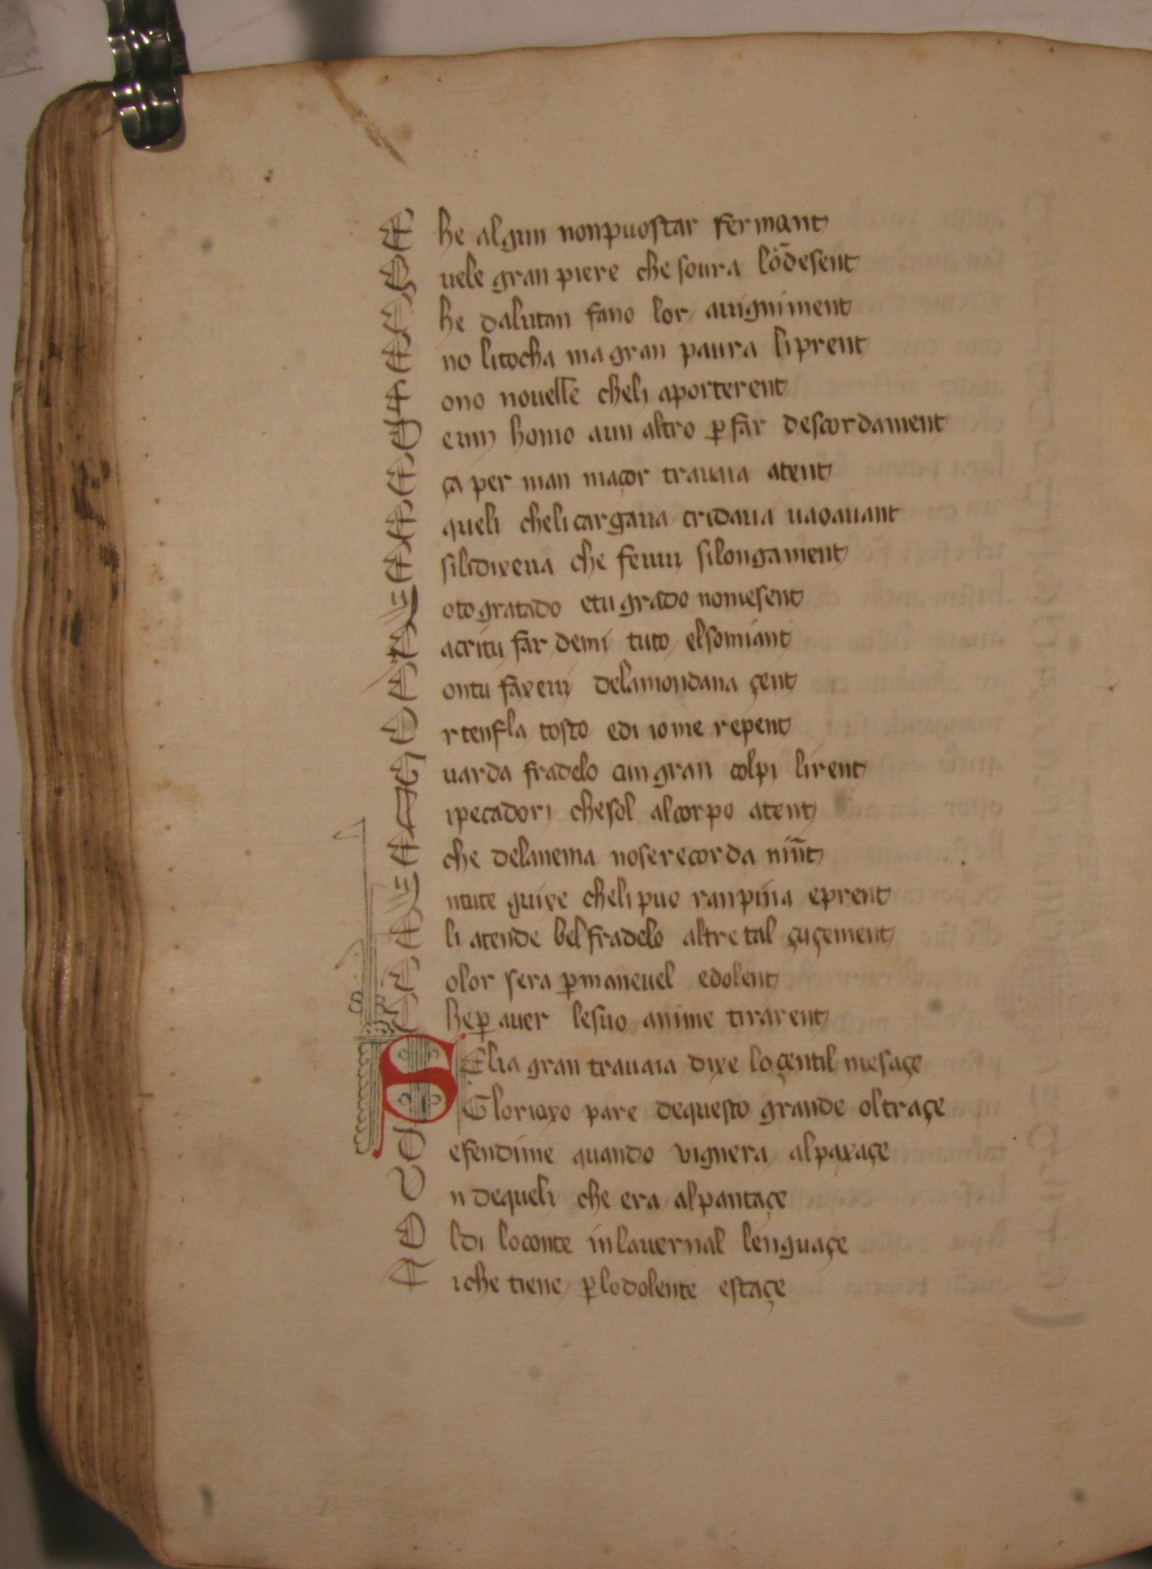 C he algun non puo star fermant
Q uele gran piere che soura lo̅ desent
C he dalutan fano lor auigniment
E no li tocha ma gran paura li prent
S ono nouelle che li aporterent
G eun homo aun altro ꝑ far descordament
E ça per man maçor trauaia atent
E queli che li cargaua cridaua uaoauant
E si li dixeua che feuu si longament
M oto gratado etu grado nomesent
F acitu far demi tuto el somiant
C ontu faxeui dela mondana çent
O r tenfla tosto edi iome repent
G uarda fradelo cun gran colpi li rent
L i pecadori che sol al corpo atent
E che delanema no se recorda niẽt
M tute guixe che li puo ranpina e prent
E li atende bel fradelo altre tal çuçement
C olor sera ꝑmaneuel e dolent
C he ꝑ auer le suo anime tirarent
S Elia gran trauaia dixe lo çentil mesaçe
Glorioxo pare de questo grande oltraçe
D efendime quando vignera al paxaçe
V n de queli che era al pantaçe
O ldi lo conte in lauernal lenguaçe
D iche tiene ꝑ lo dolente estaçe